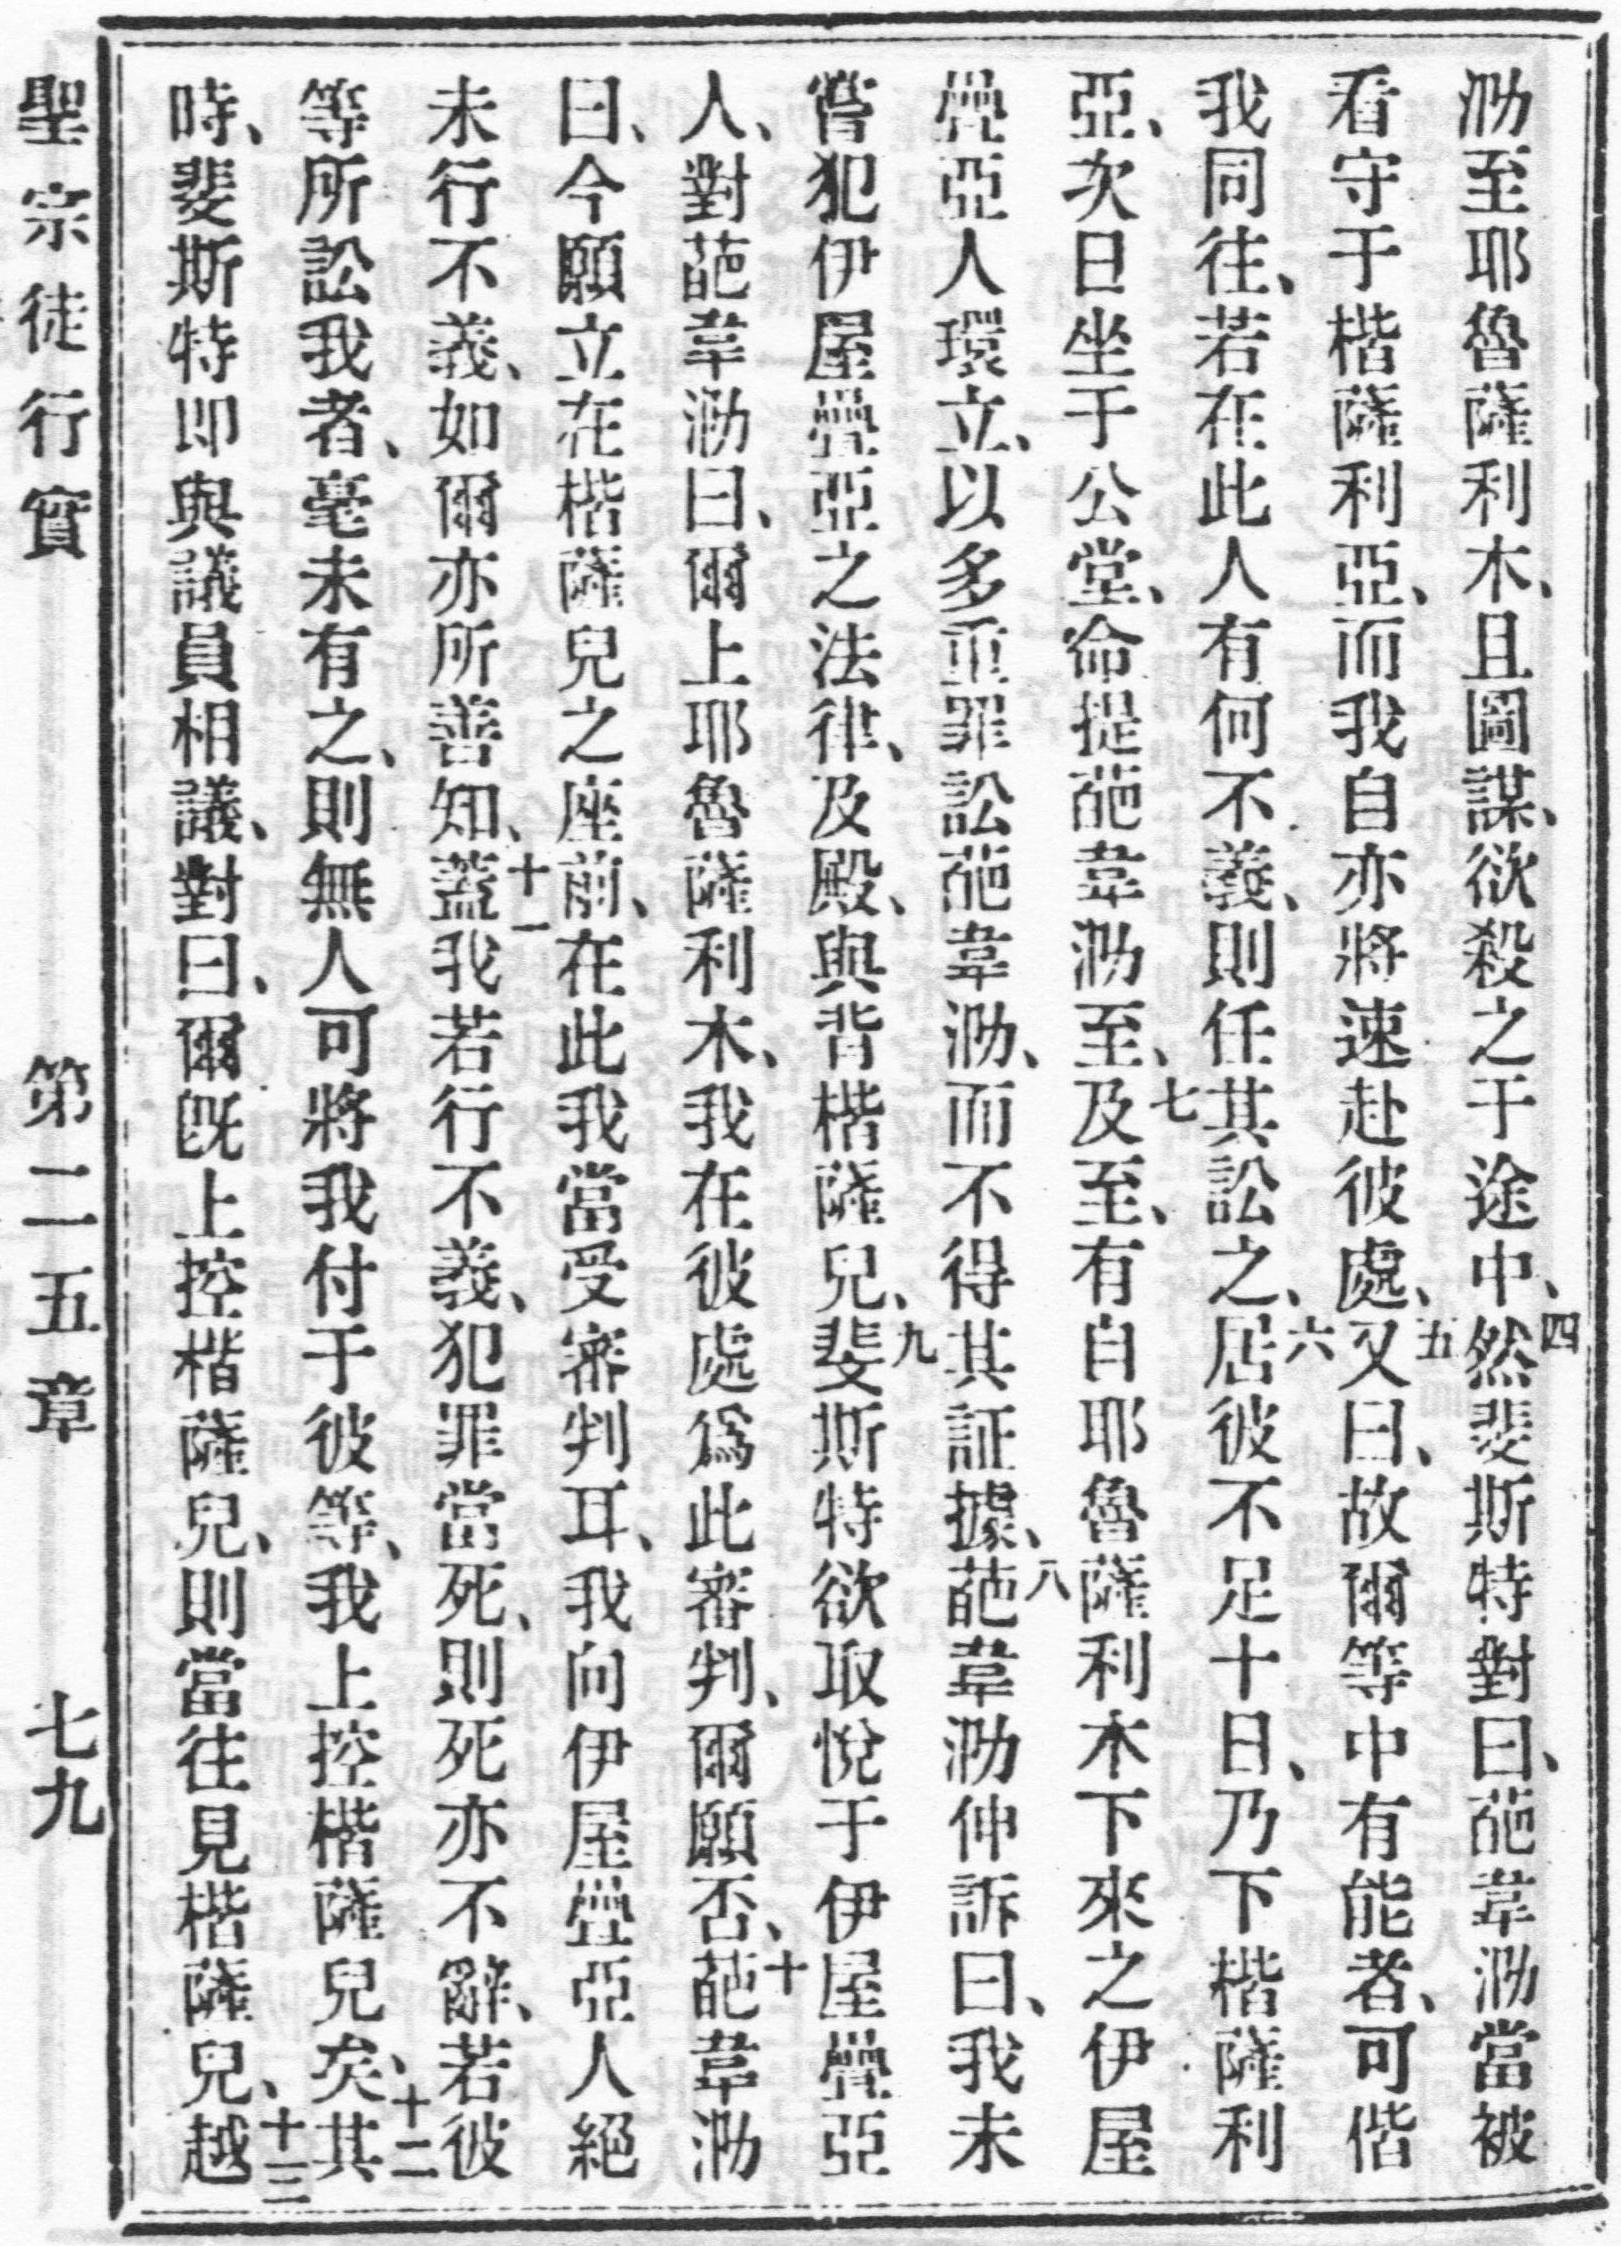 泐至耶魯薩利木、且圖謀、欲殺之于途中、四然斐斯特對曰、葩韋泐當被
看守于楷薩利亞、而我自亦將速赴彼處、五又曰、故爾等中有能者、可偕
我同往、若在此人有何不義、則任其訟之、六居彼不足十日、乃下楷薩利
亞、次日坐于公堂、命提葩韋泐至、七及至、有自耶魯薩利木下來之伊屋
疊亞人環立、以多重罪訟葩韋泐、而不得其証據、八葩韋泐伸訴曰、我未
嘗犯伊屋疊亞之法律、及殿、與背楷薩兒、九斐斯特欲取悅于伊屋疊亞
人、對葩韋泐曰、爾上耶魯薩利木、我在彼處爲此審判、爾願否、十葩韋泐
曰、今願立在楷薩兒之座前、在此我當受審判耳、我向伊屋疊亞人絕
未行不義、如爾亦所善知、十一蓋我若行不義、犯罪當死、則死亦不辭、若彼
等所訟我者、毫未有之、則無人可將我付于彼等、我上控楷薩兒矣、十二其
時、斐斯特即與議員相議、對曰、爾旣上控楷薩兒、則當往見楷薩兒、十三越
聖宗徒行實　第二五章　七九